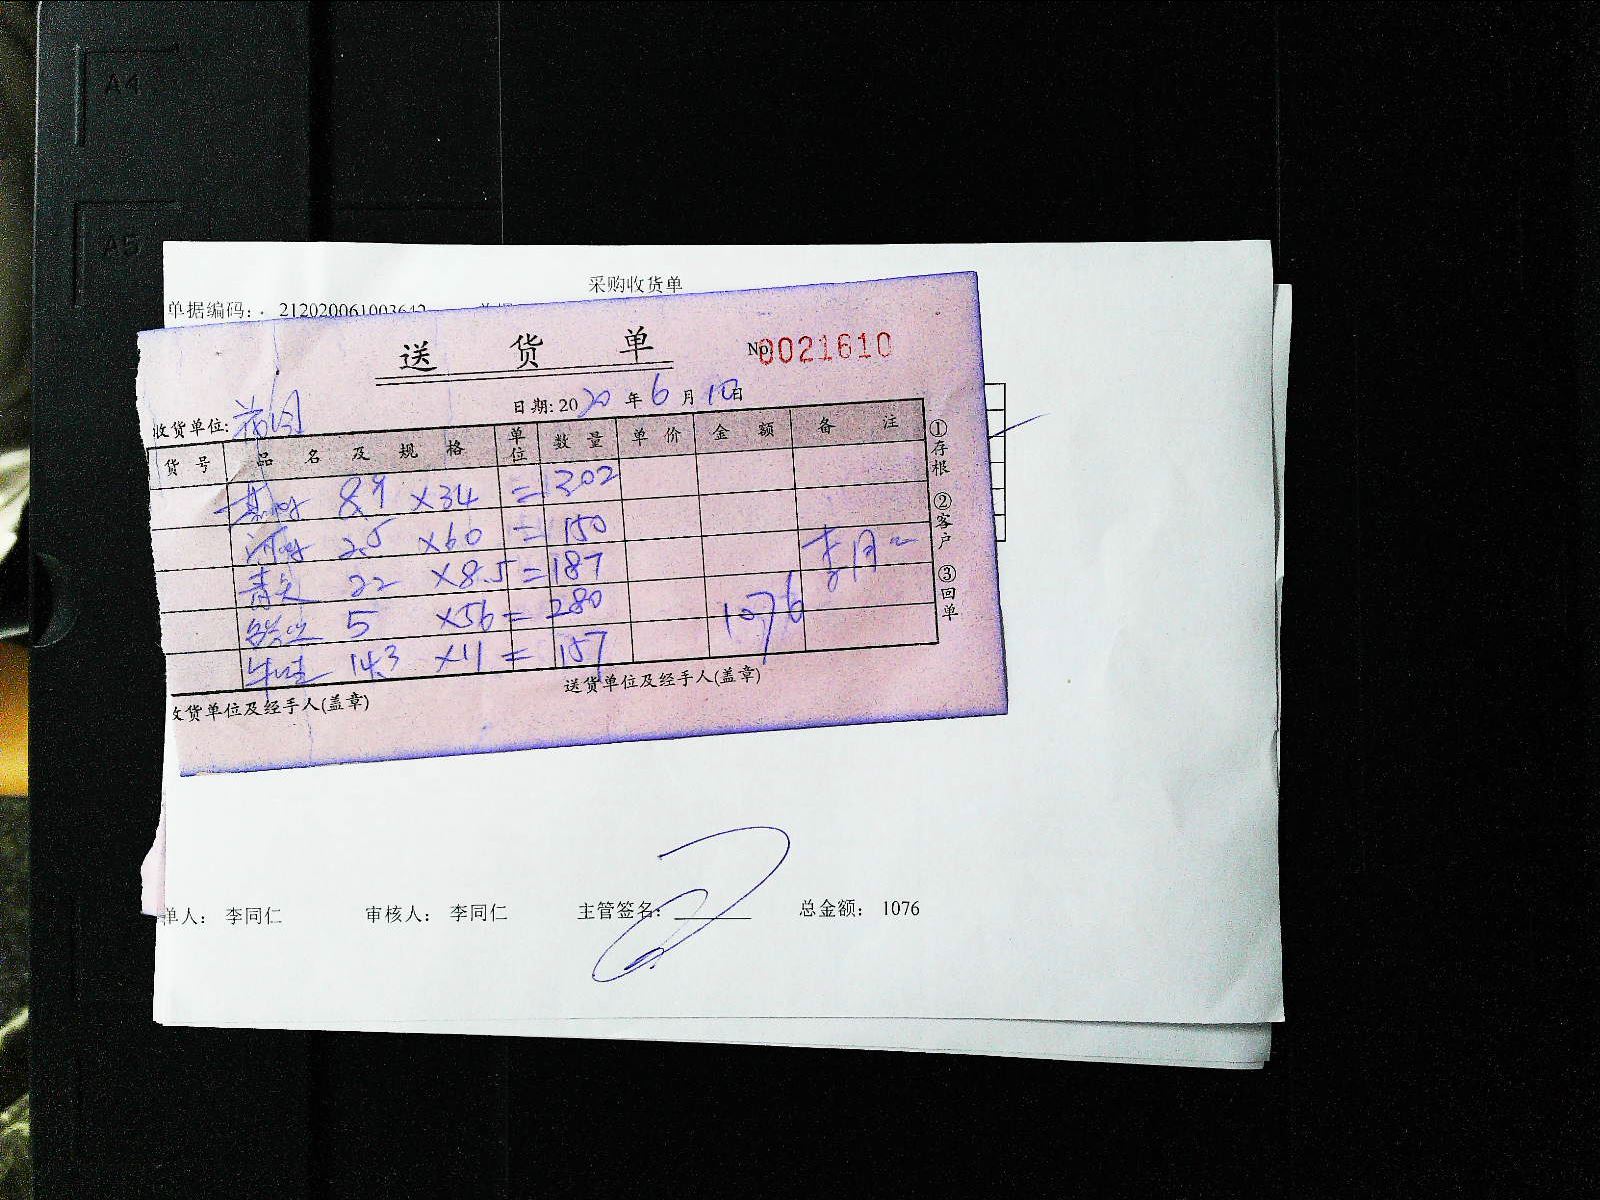 A4
A5
采购收货单
单据编码: 212020061003642
送 货 单 No 0021610
日期: 2020 年 6 月 10 日
收货单位:
货号 品名及规格 单位 数量 单价 金额 备注
8.9 ×34 =302
2.5 ×60 = 150
22 ×8.5 =187
5 ×56 = 280
14.3 ×11 = 157
1076
①存根 ②客户 ③回单
收货单位及经手人(盖章) 送货单位及经手人(盖章)
单人: 李同仁 审核人: 李同仁 主管签名: 总金额: 1076